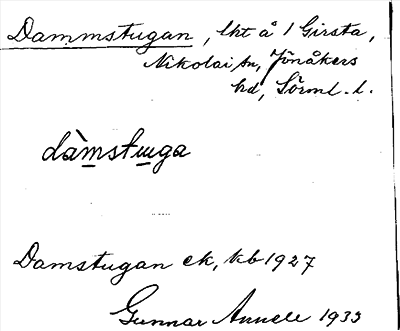 Dammstugan, lht å 1 Girsta,
Nikolai sn, Jönåkers
hd, Sörml. l.
dàmstɯga
Damstugan ek, kb 1927
Gunnar 1933